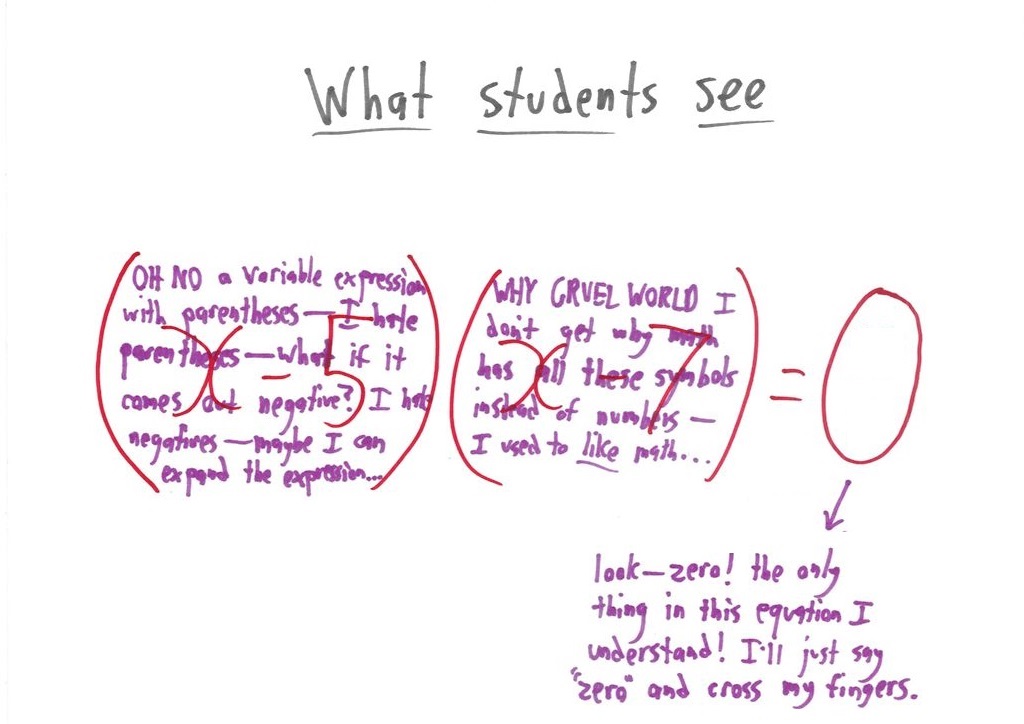 What students see
OH NO a variable expression
with parentheses—I hate
parentheses—what if it
comes out negative? I hate
negatives—maybe I can
expand the expression...
(x-5)
WHY CRUEL WORLD I
don't get why math
has all these symbols
instead of numbers—
I used to like math...
(x-7)
= 0
look—zero! the only
thing in this equation I
understand! I'll just say
"zero" and cross my fingers.